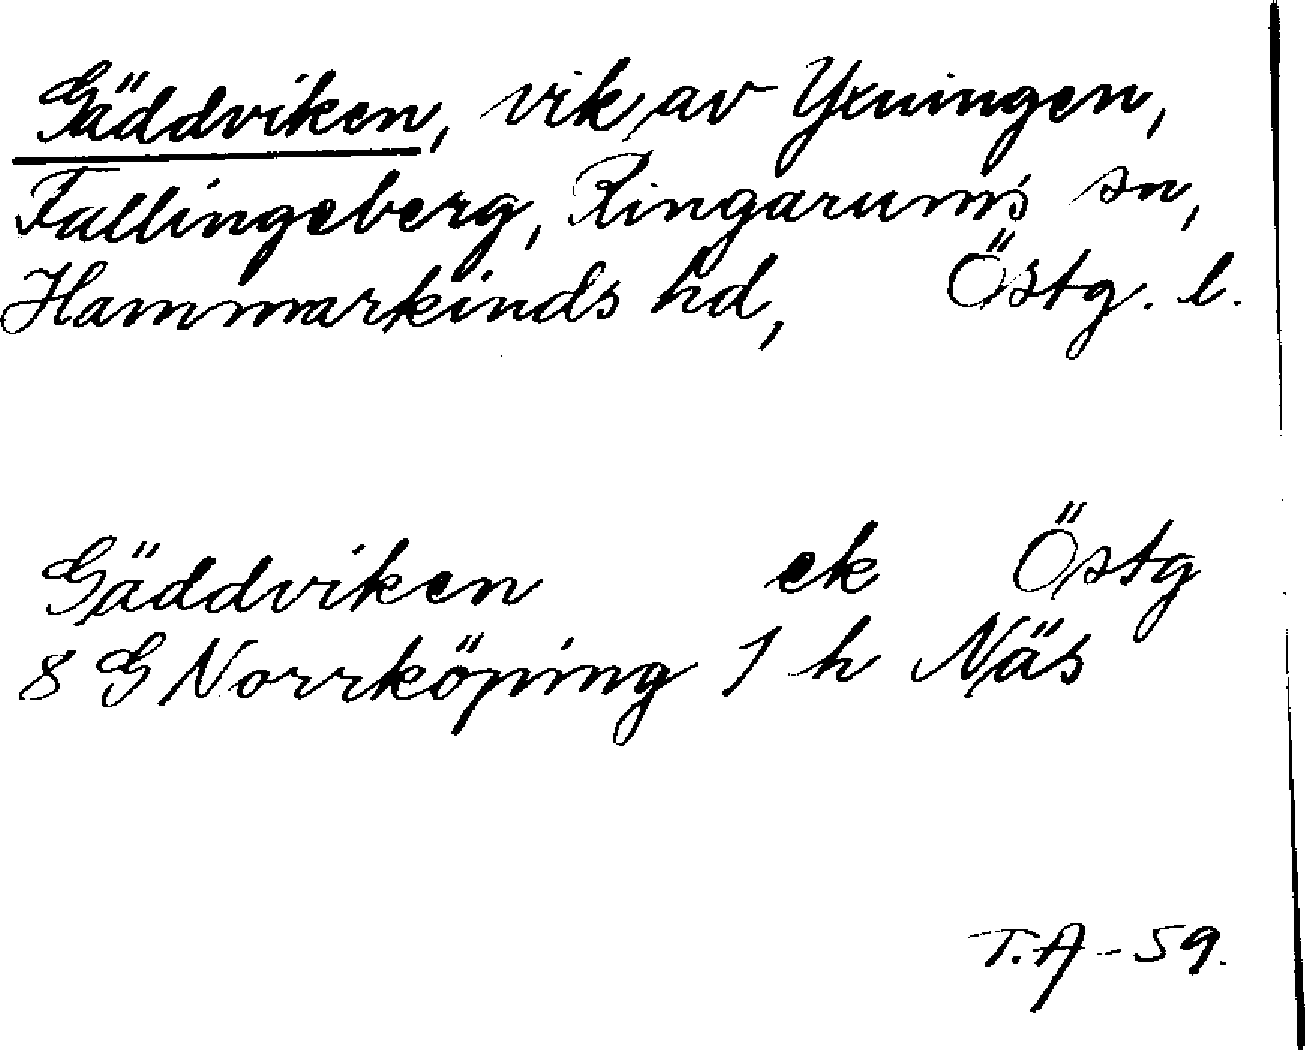 Gäddviken, vik av Yxningen,
Fallingeberg, Ringarums sn,
Hammarkinds hd, Östg. l.
Gäddviken ek Östg
8 G Norrköping 1 h Näs
T.A-59.